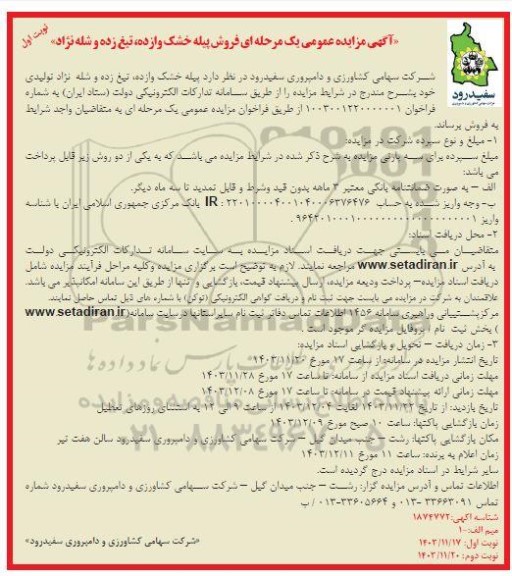 نوبت اول
«آگهی مزایده عمومی یک مرحله ای فروش پیله خشک وازده، تیغ زده و شله نژاد»
سفیدرود
شرکت سهامی کشاورزی و دامپروری سفیدرود در نظر دارد پیله خشک وازده، تیغ زده و شله نژاد تولیدی
خود بشرح مندرج در شرایط مزایده را از طریق سامانه تدارکات الکترونیکی دولت (ستاد ایران) به شماره
فراخوان ۱۰۰۳۰۰۱۲۲۰۰۰۰۰۰۱ از طریق فراخوان مزایده عمومی یک مرحله ای به متقاضیان واجد شرایط
به فروش برساند.
۱- مبلغ و نوع سپرده شرکت در مزایده:
مبلغ سپرده برای سه پارتی مزایده به شرح ذکر شده در شرایط مزایده می باشد که به یکی از دو روش زیر قابل پرداخت
می باشد:
الف – به صورت ضمانتنامه بانکی معتبر ۳ ماهه بدون قید وشرط و قابل تمدید تا سه ماه دیگر.
ب- وجه واریز شده به حساب IR : ۲۲۰۱۰۰۰۰۴۰۰۱۰۴۰۰۰۶۳۷۶۴۷۶ بانک مرکزی جمهوری اسلامی ایران با شناسه
واریز
۲- محل دریافت اسناد:
متقاضیان می بایستی جهت دریافت اسناد مزایده به سایت سامانه تدارکات الکترونیکی دولت
به آدرس www.setadiran.ir مراجعه نمایند. لازم به توضیح است برگزاری مزایده وکلیه مراحل فرآیند مزایده شامل
دریافت اسناد مزایده– پرداخت ودیعه مزایده، ارسال پیشنهاد قیمت، بازگشایی و تنها از طریق این سامانه امکانپذیر می باشد.
علاقمندان به شرکت در مزایده می بایست جهت ثبت نام و دریافت گواهی الکترونیکی (توکن) با شماره های ذیل تماس حاصل نمایند.
مرکزپشتیبانی وراهبری سامانه ۱۴۵۶ اطلاعات تماس دفاتر ثبت نام سایراستانها درسایت سامانه(www.setadiran.ir
) بخش ثبت نام / پروفایل مزایده گر موجود است .
۳- زمان دریافت – تحویل و بازگشایی اسناد مزایده:
تاریخ انتشار مزایده در سامانه: از ساعت ۱۷ مورخ ۱۴۰۳/۱۱/۲۰
مهلت زمانی دریافت اسناد مزایده از سامانه: تا ساعت ۱۷ مورخ ۱۴۰۳/۱۱/۲۸
مهلت زمانی ارائه پیشنهاد قیمت در سامانه: تا ساعت ۱۷ مورخ ۱۴۰۳/۱۲/۰۸
تاریخ بازدید: از تاریخ ۱۴۰۳/۱۱/۲۲ لغایت ۱۴۰۳/۱۲/۰۴ از ساعت ۹ الی ۱۲ به استثنای روزهای تعطیل
زمان بازگشایی پاکتها: ساعت ۱۰ صبح مورخ ۱۴۰۳/۱۲/۰۹
مکان بازگشایی پاکتها: رشت – جنب میدان گیل – شرکت سهامی کشاورزی و دامپروری سفیدرود سالن هفت تیر
زمان اعلام به برنده: ساعت ۱۱ مورخ ۱۴۰۳/۱۲/۱۱
سایر شرایط در اسناد مزایده درج گردیده است.
اطلاعات تماس و آدرس مزایده گزار: رشت – جنب میدان گیل – شرکت سهامی کشاورزی و دامپروری سفیدرود شماره
تماس ۳۳۶۶۳۰۹۱ -۰۱۳ و ۳۳۶۰۵۶۶۴-۰۱۳ / ب
شناسه آگهی: ۱۸۷۴۷۷۲
میم الف: ۱۰۰
نوبت اول: ۱۴۰۳/۱۱/۱۷
نوبت دوم: ۱۴۰۳/۱۱/۲۰
«شرکت سهامی کشاورزی و دامپروری سفیدرود»